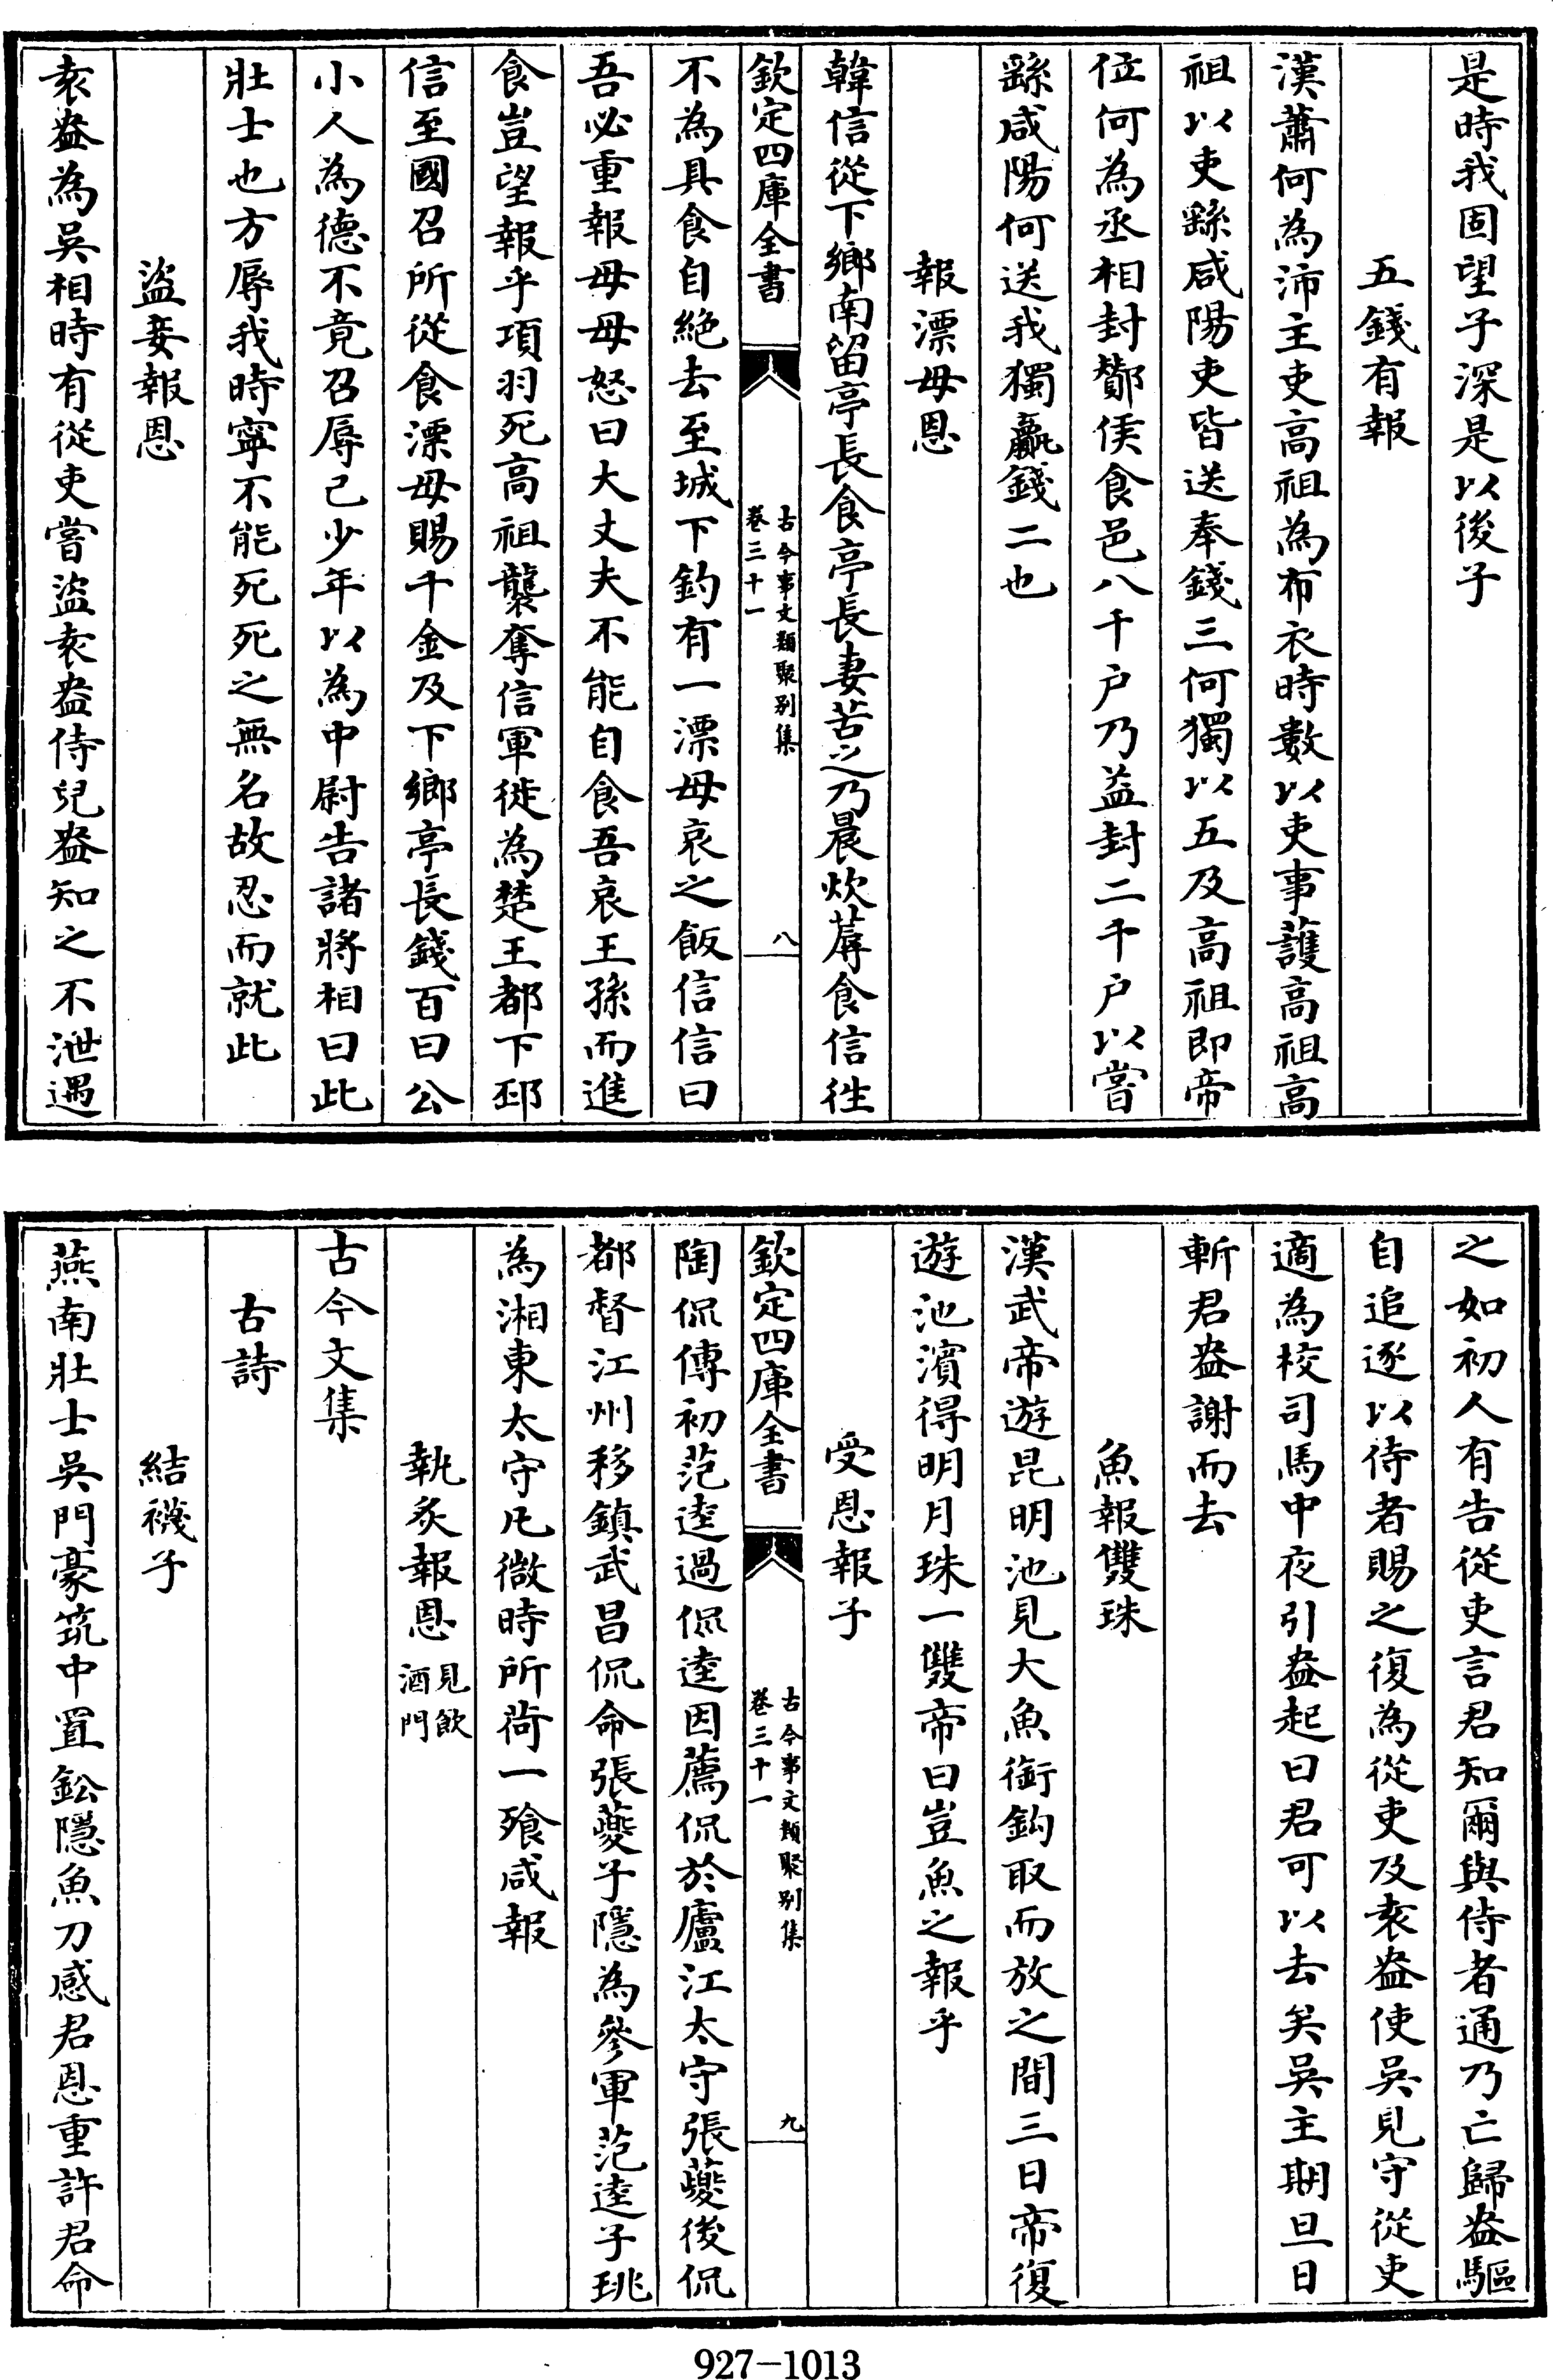 是時我固望子深是以後子
五錢有報
漢蕭何為沛主吏高祖為布衣時數以吏事護高祖高
祖以吏繇咸陽吏皆送奉錢三何獨以五及高祖即帝
位何為丞相封酇侯食邑八千户乃益封二千户以嘗
繇咸陽何送我獨贏錢二也
報漂母恩
韓信從下鄉南留亭長食亭長妻苦之乃晨炊蓐食信徃
欽定四庫全書
古今事文類聚别集
卷三十一
八
不為具食自絶去至城下釣有一漂母哀之飯信信曰
吾必重報母母怒曰大丈夫不能自食吾哀王孫而進
食豈望報乎項羽死高祖襲奪信軍徙為楚王都下邳
信至國召所從食漂母賜千金及下鄉亭長錢百曰公
小人為德不竟召辱己少年以為中尉告諸將相曰此
壯士也方辱我時寧不能死死之無名故忍而就此
盜妾報恩
袁盎為吳相時有從吏嘗盜袁盎侍兒盎知之不泄遇
之如初人有告從吏言君知爾與侍者通乃亡歸盎驅
自追逐以侍者賜之復為從吏及袁盎使吳見守從吏
適為校司馬中夜引盎起曰君可以去矣吳主期旦日
斬君盎謝而去
魚報雙珠
漢武帝遊昆明池見大魚銜鈎取而放之間三日帝復
遊池濱得明月珠一雙帝曰豈魚之報乎
受恩報子
欽定四庫全書
古今事文類聚别集
卷三十一
九
陶侃傳初范逵過侃逵因薦侃於廬江太守張夔後侃
都督江州移鎮武昌侃命張夔子隱為參軍范逵子珧
為湘東太守凡微時所荷一飱咸報
執炙報恩
見飲
酒門
古今文集
古詩
結襪子
燕南壯士吳門豪筑中置鉛隱魚刀感君恩重許君命
927-1013